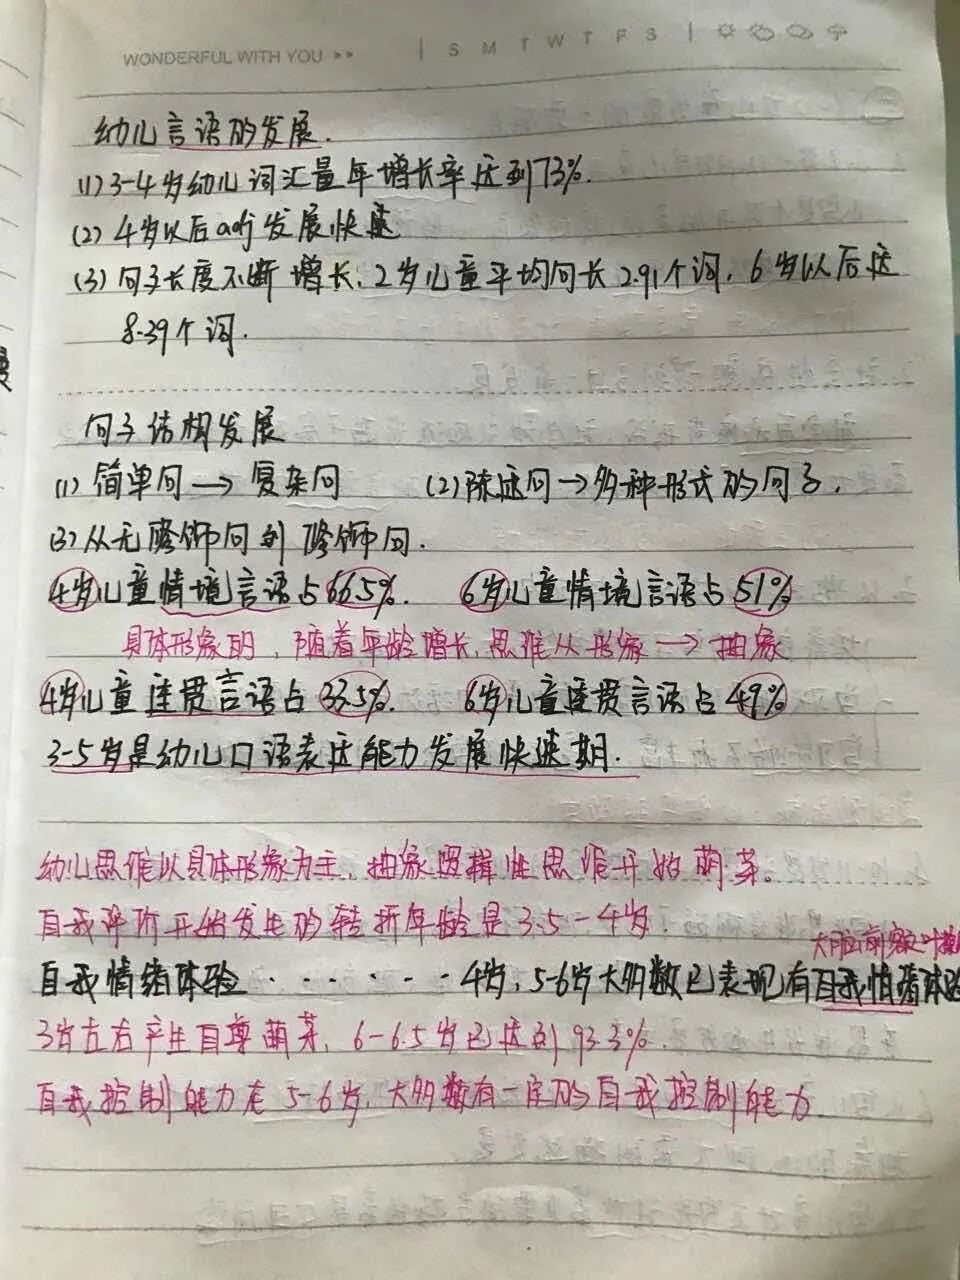 WONDERFUL WITH YOU
S M T W T F S
幼儿言语的发展.
(1) 3-4岁幼儿词汇量年增长率达到73%.
(2) 4岁以后adj发展快速
(3) 句子长度不断增长: 2岁儿童平均句长2.91个词, 6岁以后达
8.39个词.
句子结构发展
(1) 简单句 → 复杂句 (2) 陈述句 → 多种形式的句子.
(3) 从无修饰句到修饰句.
4岁儿童情境言语占66.5%. 6岁儿童情境言语占51%
具体形象的, 随着年龄增长, 思维从形象 → 抽象
4岁儿童连贯言语占33.5%. 6岁儿童连贯言语占49%
3-5岁是幼儿口语表达能力发展快速期.
幼儿思维以具体形象为主, 抽象逻辑性思维开始萌芽。
自我评价开始发生的转折年龄是3.5-4岁
大脑前额叶
自我情绪体验 · · · · · · 4岁, 5-6岁大多数已表现有自我情绪体验
3岁左右产生自尊萌芽, 6-6.5岁已达到93.3%.
自我控制能力在5-6岁, 大多数有一定的自我控制能力